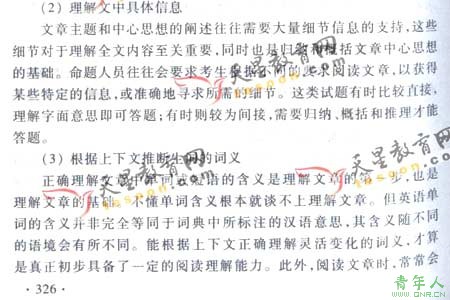 (2) 理解文中具体信息
文章主题和中心思想的阐述往往需要大量细节信息的支持，这些
细节对于理解全文内容至关重要，同时也是归纳和概括文章中心思想
的基础。命题人员往往会要求考生根据不同的要求阅读文章，以获得
某些特定的信息，或准确地寻求所需的细节。这类试题有时比较直接，
理解字面意思即可答题；有时则较为间接，需要归纳、概括和推理才能
答题。
(3) 根据上下文推断生词的词义
正确理解文章中单词或短语的含义是理解文章的第一步，也是
理解文章的基础。不懂单词含义根本就谈不上理解文章。但英语单
词的含义并非完全等同于词典中所标注的汉语意思，其含义随不同
的语境会有所不同。能根据上下文正确理解灵活变化的词义，才算
是真正初步具备了一定的阅读理解能力。此外，阅读文章时，常常会
·326·
天星教育网
tesoon.com
天星教育网
tesoon.com
青年人
QNR.CN